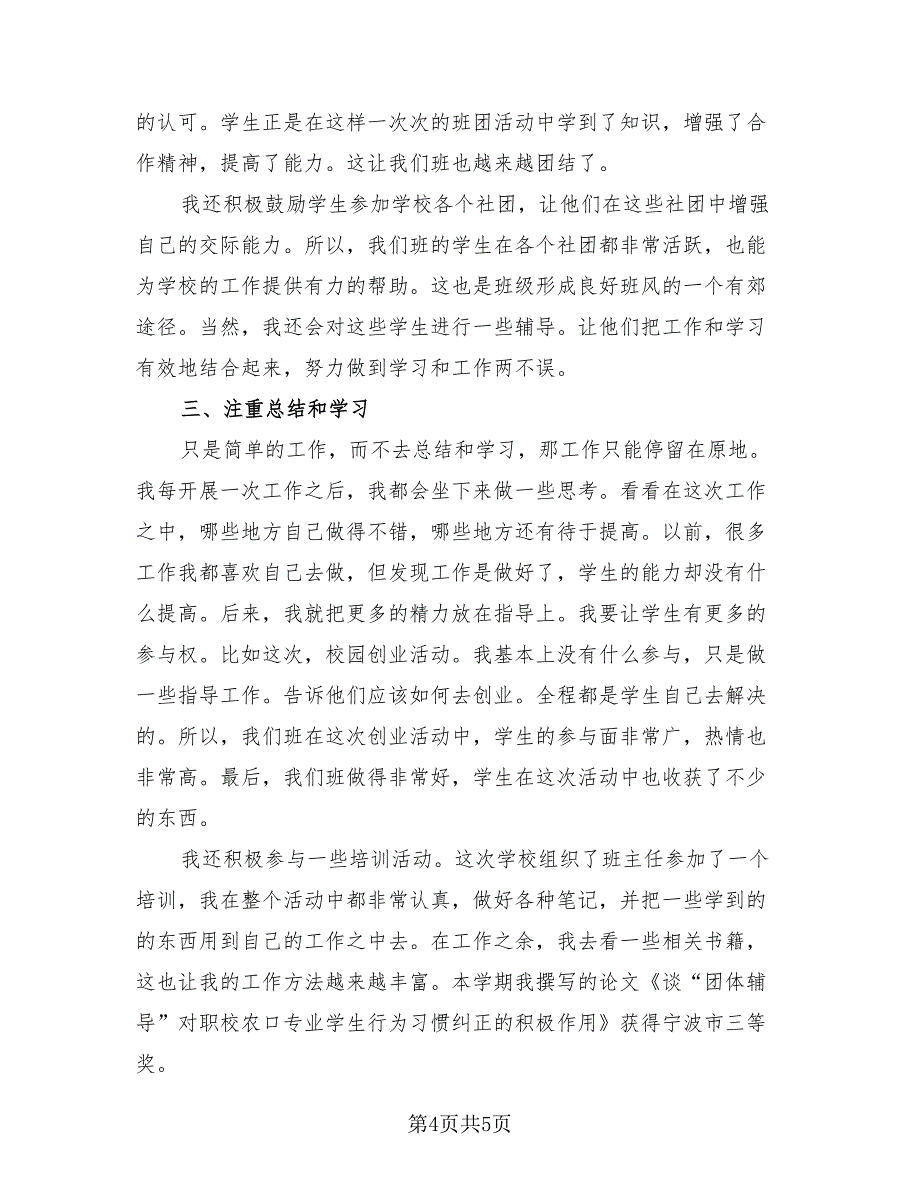 的认可。学生正是在这样一次次的班团活动中学到了知识，增强了合
作精神，提高了能力。这让我们班也越来越团结了。
我还积极鼓励学生参加学校各个社团，让他们在这些社团中增强
自己的交际能力。所以，我们班的学生在各个社团都非常活跃，也能
为学校的工作提供有力的帮助。这也是班级形成良好班风的一个有郊
途径。当然，我还会对这些学生进行一些辅导。让他们把工作和学习
有效地结合起来，努力做到学习和工作两不误。
三、注重总结和学习
只是简单的工作，而不去总结和学习，那工作只能停留在原地。
我每开展一次工作之后，我都会坐下来做一些思考。看看在这次工作
之中，哪些地方自己做得不错，哪些地方还有待于提高。以前，很多
工作我都喜欢自己去做，但发现工作是做好了，学生的能力却没有什
么提高。后来，我就把更多的精力放在指导上。我要让学生有更多的
参与权。比如这次，校园创业活动。我基本上没有什么参与，只是做
一些指导工作。告诉他们应该如何去创业。全程都是学生自己去解决
的。所以，我们班在这次创业活动中，学生的参与面非常广，热情也
非常高。最后，我们班做得非常好，学生在这次活动中也收获了不少
的东西。
我还积极参与一些培训活动。这次学校组织了班主任参加了一个
培训，我在整个活动中都非常认真，做好各种笔记，并把一些学到的
的东西用到自己的工作之中去。在工作之余，我去看一些相关书籍，
这也让我的工作方法越来越丰富。本学期我撰写的论文《谈“团体辅
导”对职校农口专业学生行为习惯纠正的积极作用》获得宁波市三等
奖。
第4页共5页